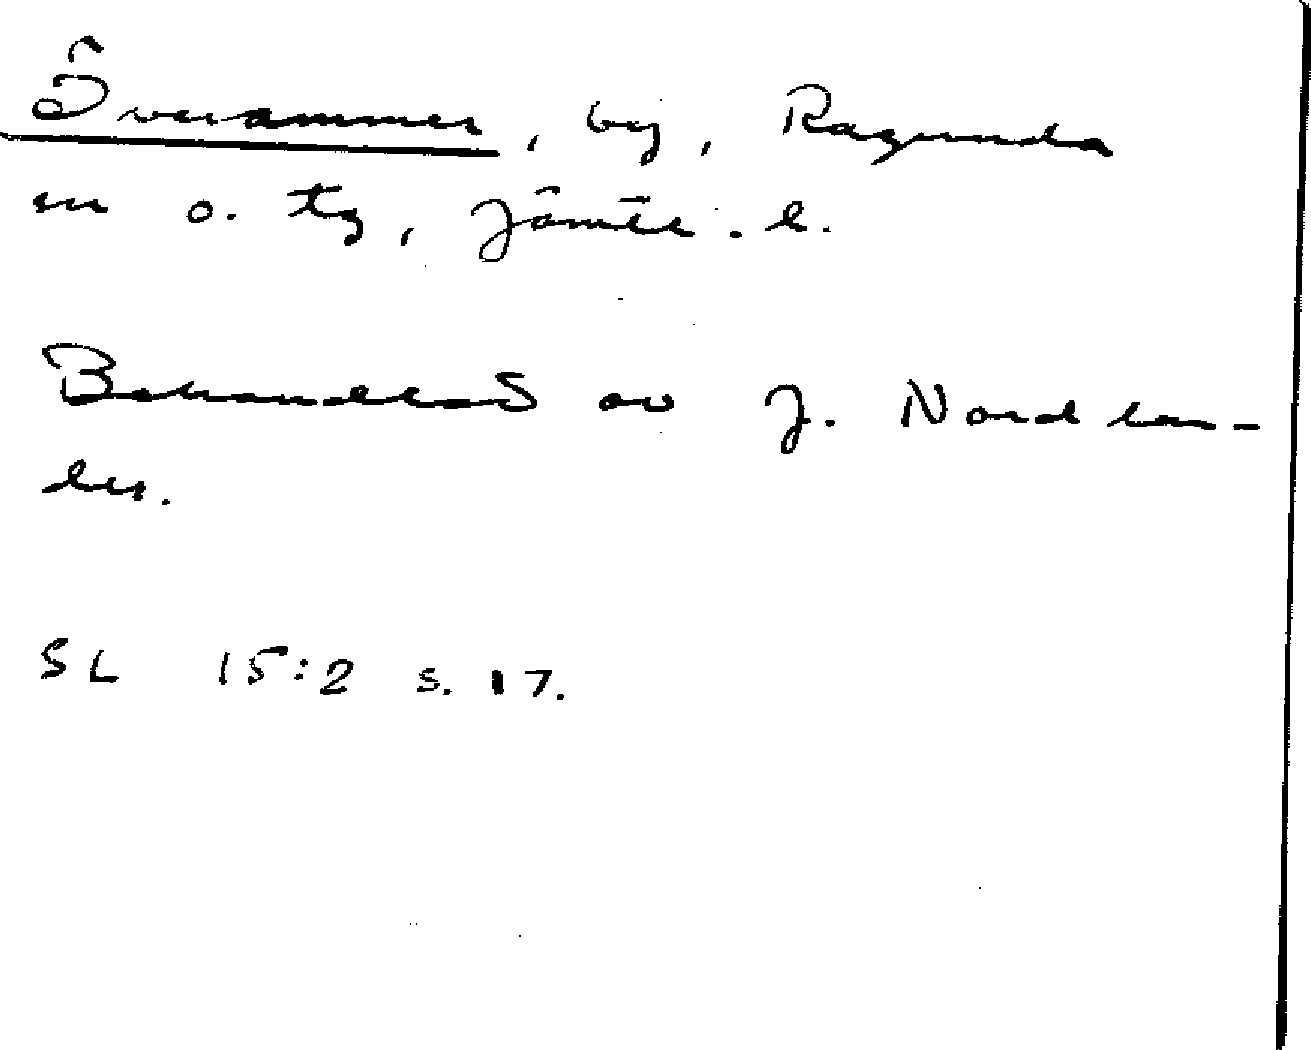 Överammer, by, Ragunda
sn o. tg, Jämtl. l.
Behandlas av J. Nordlan-
der.
SL 15:2 s. 17.